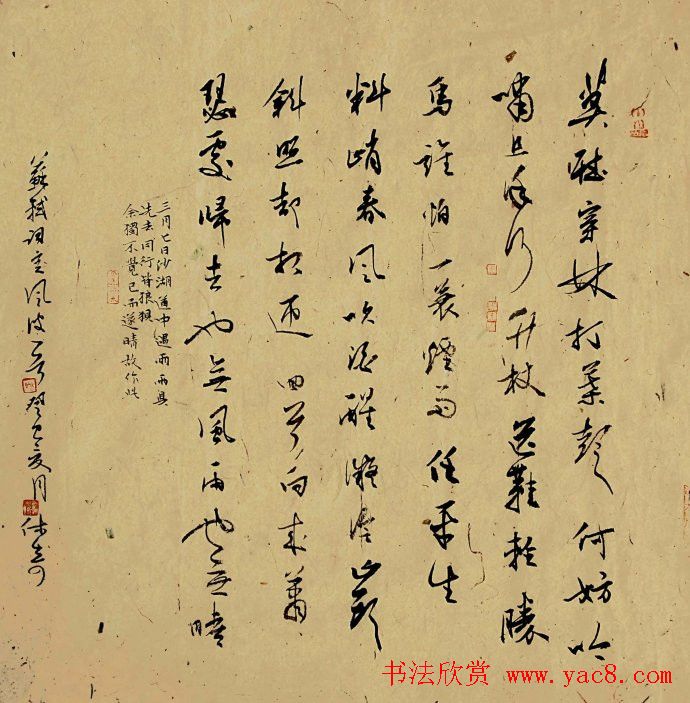 莫聽穿林打葉聲何妨吟
嘯且徐行竹杖芒鞋輕勝
馬誰怕一蓑煙雨任平生
料峭春風吹酒醒微冷山頭
斜照却相迎回首向來蕭
瑟處歸去也無風雨也無晴
三月七日沙湖道中遇雨雨具
先去同行皆狼狽
余獨不覺已而遂晴故作此
蘇軾詞定風波一首癸巳夏月
书法欣赏 www.yac8.com